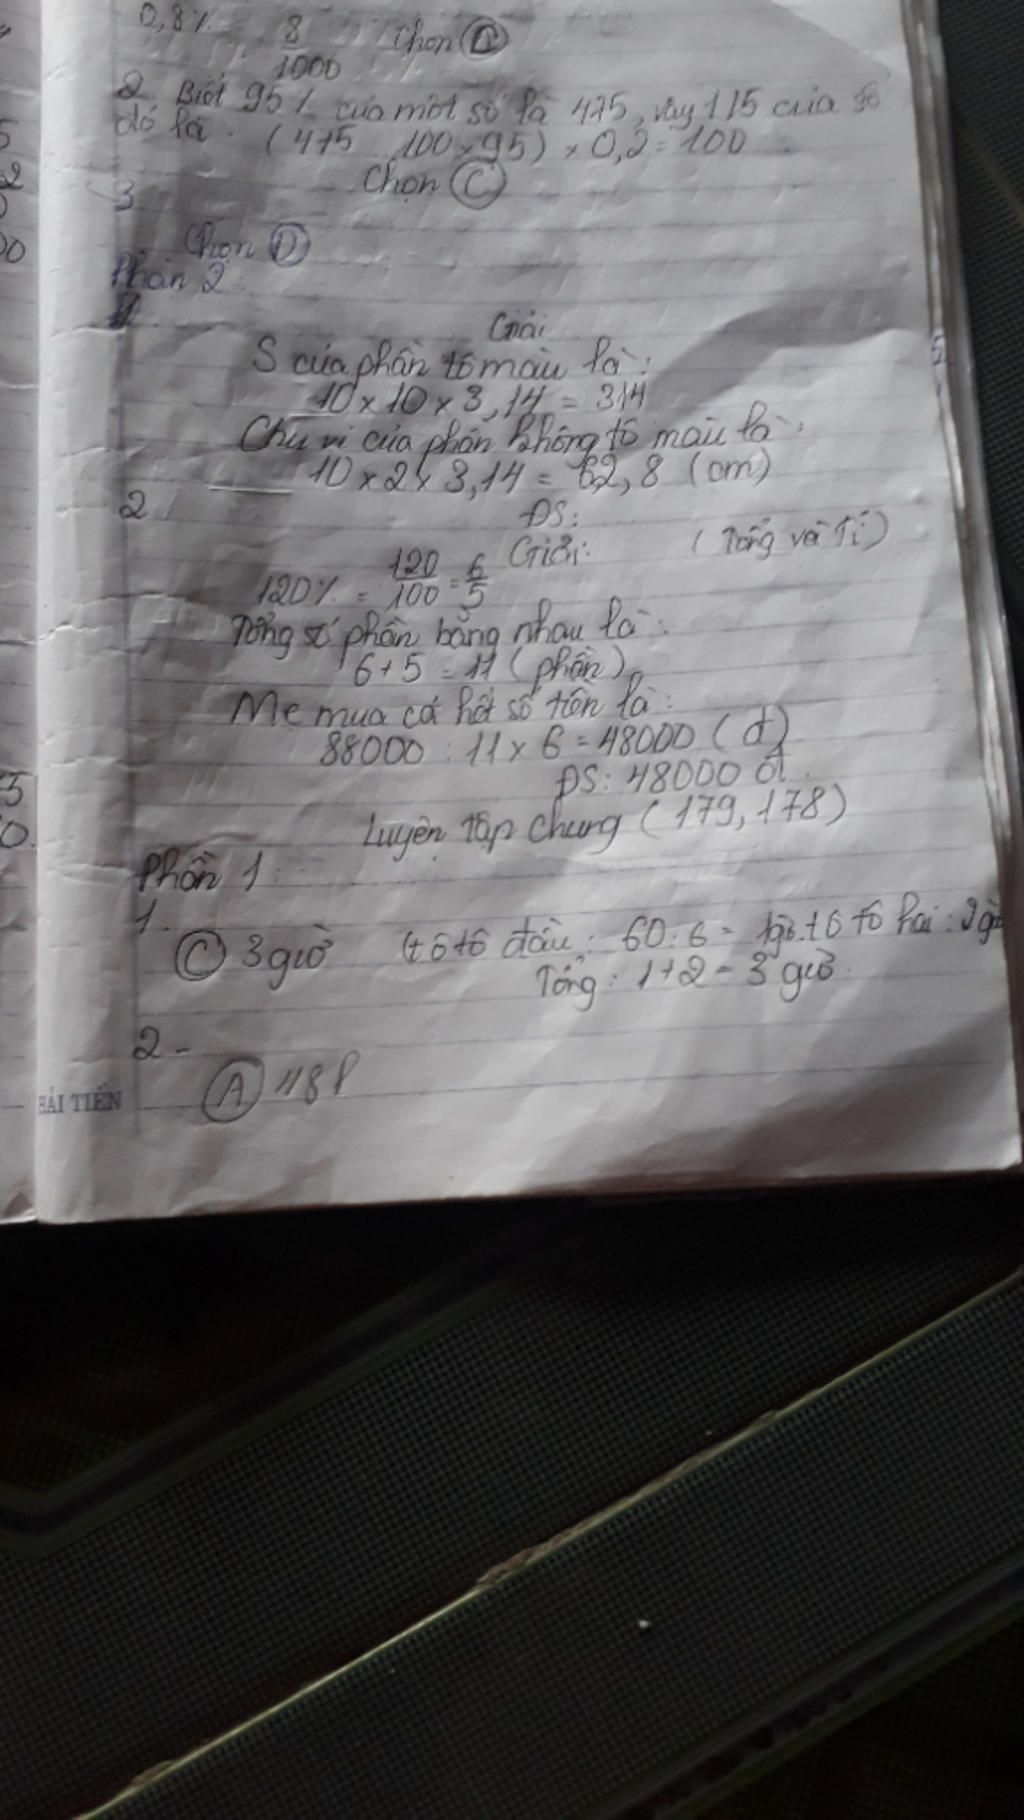 0,8% = 8/1000 Chọn C
2 Biết 95% của một số là 475, vậy 1/5 của số
đó là (475 100 × 95) × 0,2 = 100
Chọn C
3
Chọn D
Phần 2
Giải
S của phần tô màu là:
10 × 10 × 3,14 = 314
Chu vi của phần không tô màu là:
10 × 2 × 3,14 = 62,8 (cm)
2
ĐS:
Giải: (Tổng và Tỉ)
120% = 120/100 = 6/5
Tổng số phần bằng nhau là:
6 + 5 = 11 (phần)
Mẹ mua cá hết số tiền là:
88000 : 11 × 6 = 48000 (đ)
ĐS: 48000 đ
Luyện tập chung (179, 178)
Phần 1
1.
C 3 giờ (t ô tô đầu: 60: 6 = 1giờ. t ô tô hai: 2 giờ
Tổng: 1 + 2 = 3 giờ
2-
A 48 l
HẢI TIẾN
5
2
0
00
5
0.